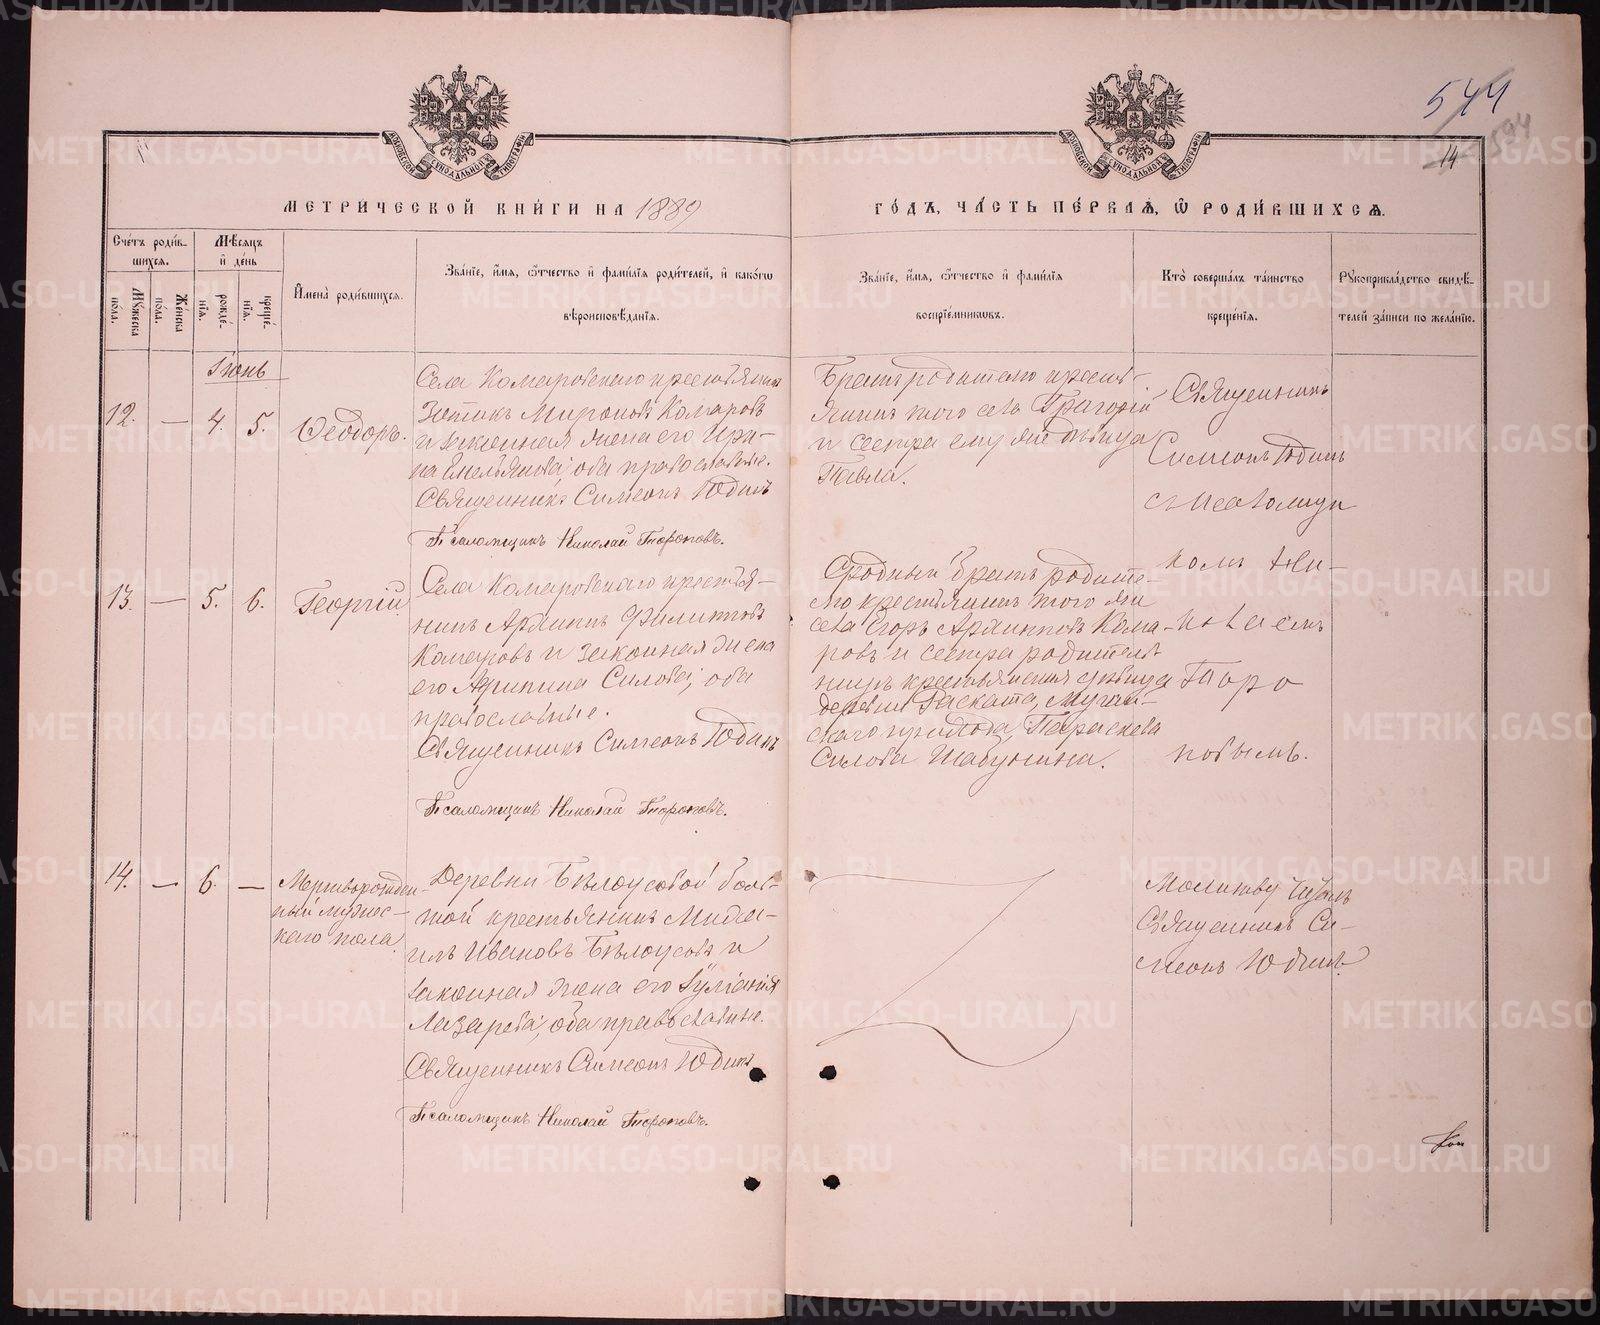 544
594
14
МЕТРИ́ЧЕСКОЙ КНИ́ГИ НА 1889
ГО́ДЪ, ЧА́СТЬ ПЕ́РВАЯ, Ѡ РОДИ́ВШИХСЯ.
Сче́тъ роди́в-
шихся.
Мѣ́сяцъ
и де́нь
Му́жеска
по́ла.
Же́нска
по́ла.
рожде́-
нїя.
креще́-
нїя.
Имена̀ роди́вшихся.
Зва́нїе, и́мя, ѻ́тчество и фами́лїя роди́телей, и како́гѡ
вѣроисповѣ́данїя.
Зва́нїе, и́мя, ѻ́тчество и фами́лїя
воспрїе́мникѡвъ.
Кто̀ соверша́лъ та́инство
креще́нїя.
Рукоприкла́дство свидѣ́-
телей за́писи по жела́нїю.
Іюнь
12. — 4. 5. Ѳеодоръ.
Села Комаровскаго крестьянинъ
Зотикъ Мироновъ Комаровъ
и законная жена его Ири-
на Емельянова; оба православные.
Священникъ Симеонъ Юдинъ
Псаломщикъ Николай Тороповъ.
Братъ родителю кресть-
янинъ того села Григорій
и сестра ему же девица
Павла.
Священникъ
Симеонъ Юдинъ
с псаломщи
комъ Ни-
колаемъ
Торо
повымъ.
13. — 5. 6. Георгій
Села Комаровскаго крестья-
нинъ Архипъ Филиповъ
Комаровъ и законная жена
его Агрипина Силова; оба
православные.
Священникъ Симеонъ Юдинъ
Псаломщикъ Николай Тороповъ.
Сродный братъ родите-
лю крестьянинъ того же
села Егоръ Архиповъ Кома-
ровъ и сестра родитель
ницѣ крестьянская девица
деревни
скаго прихода, Параскева
Силова Шабунина.
14. — 6. — Мертворожден-
ный мужес-
каго пола.
Деревни Бѣлоусовой боль-
шой крестьянинъ Миха-
илъ Ивановъ Бѣлоусовъ и
законная жена его Іуліанія
Лазарева; оба православные.
Священникъ Симеонъ Юдинъ
Псаломщикъ Николай Тороповъ.
Молитву читалъ
Священникъ Си-
меонъ Юдинъ.
METRIKI.GASO-URAL.RU